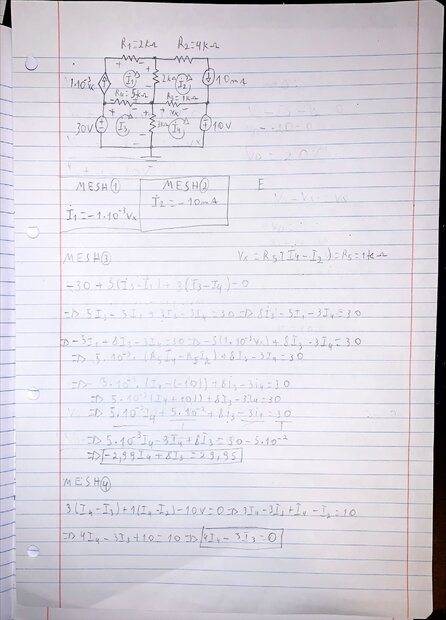 R₁=2kΩ R₂=4kΩ
1·10⁻³ I₁ 2kΩ I₂ 10mA
R₄=5kΩ R₅=1kΩ
Vx
30V I₃ 3kΩ I₄ 10V
MESH① MESH② E
I₁=-1·10⁻³Vx I₂=-10mA
MESH③ Vx=R₅(I₄-I₂)⇒R₅=1kΩ
-30+5(I₃-I₁)+3(I₃-I₄)=0
=> 5I₃-5I₁+3I₃-3I₄=30 => 8I₃-5I₁-3I₄=30
=> -5I₁+8I₃-3I₄=30 => -5(-1·10⁻³Vx)+8I₃-3I₄=30
=> 5·10⁻³(R₅I₄-R₅I₂)+8I₃-3I₄=30
=> 5·10⁻³(I₄-(-10))+8I₃-3I₄=30
=> 5·10⁻³(I₄+10)+8I₃-3I₄=30
=> 5·10⁻³I₄+5·10⁻²+8I₃-3I₄=30
=> 5·10⁻³I₄-3I₄+8I₃=30-5·10⁻²
=> -2,99I₄+8I₃=29,95
MESH④
3(I₄-I₃)+1(I₄-I₂)-10V=0 => 3I₄-3I₃+I₄-I₂=10
=> 4I₄-3I₃+10=10 => 4I₄-3I₃=0